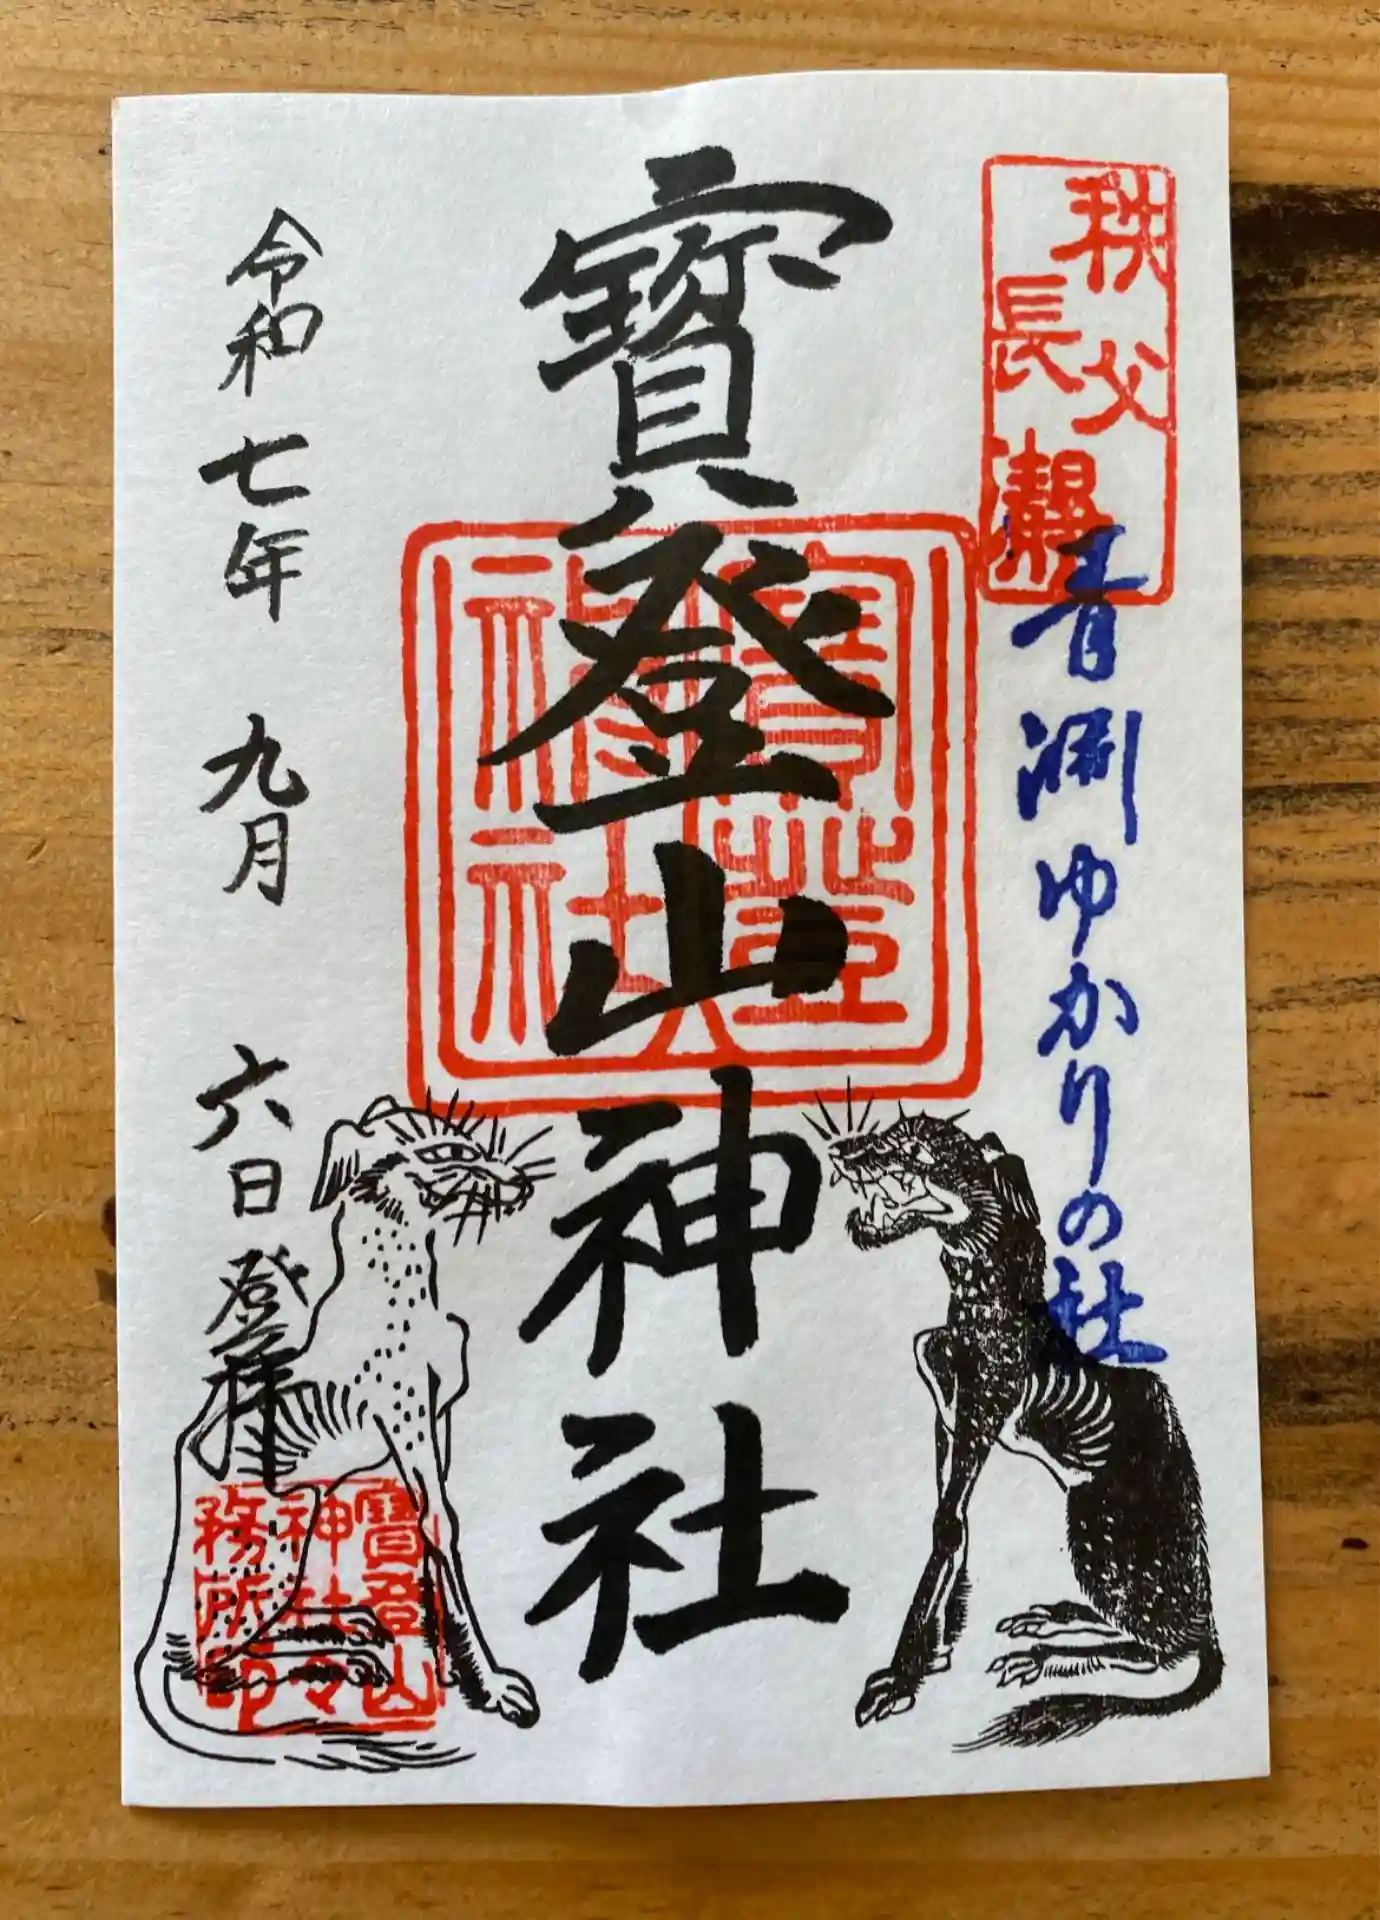 秩父
長瀞
青淵ゆかりの社
寶登山神社
寶登
山神
社
令和七年 九月 六日 登拝
寶登山
神社之
務所印